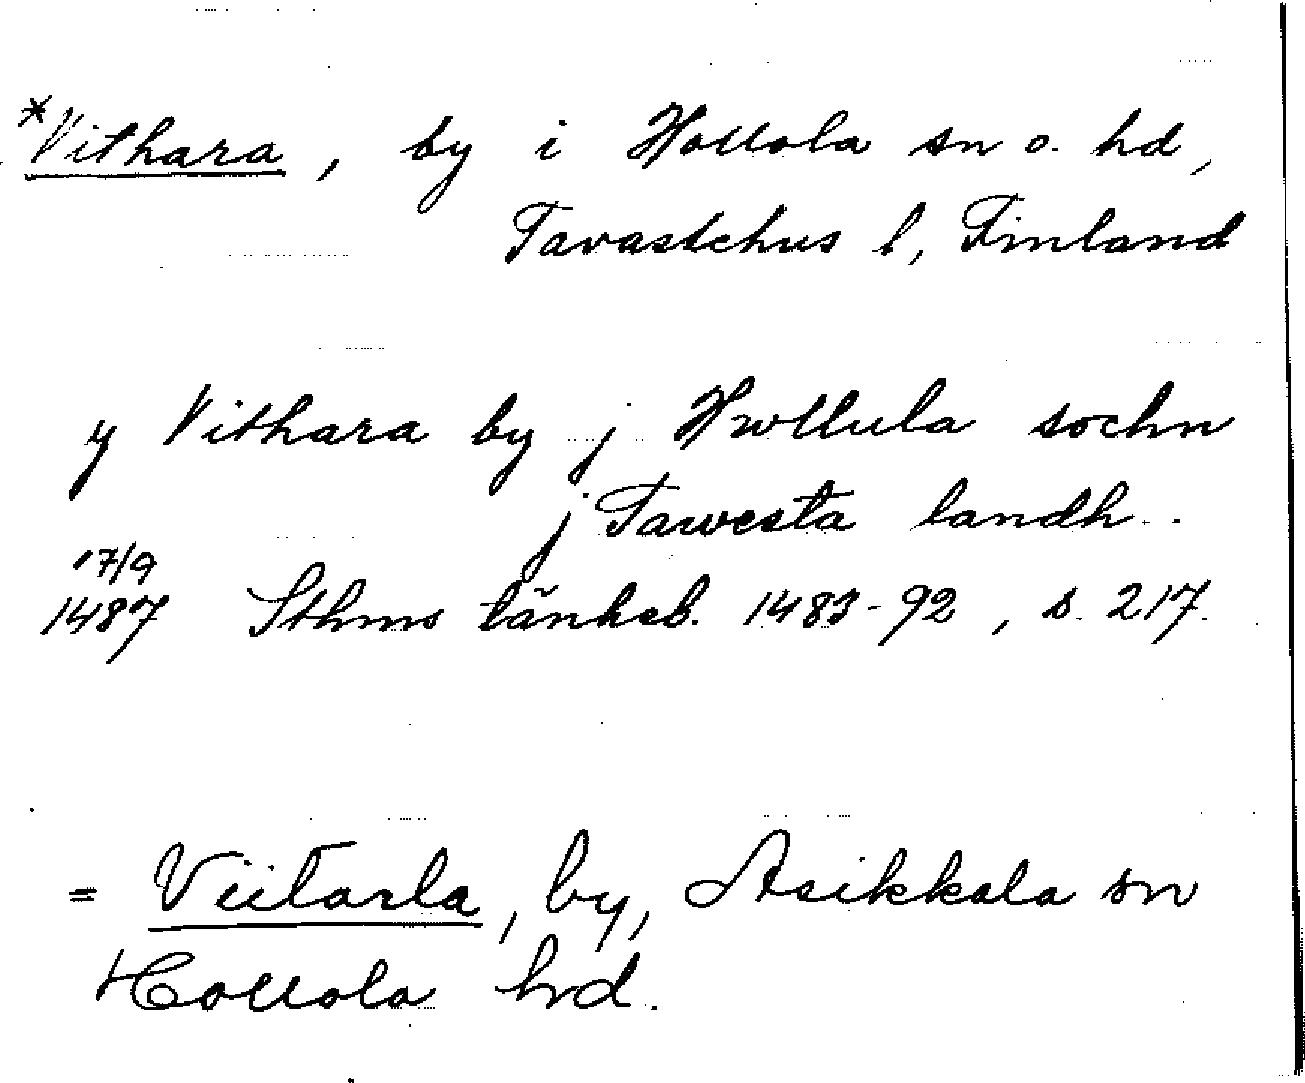 *Vithara, by i Hollola sn o. hd,
Tavastehus l, Finland
y Vithara by j Hwllula sochn
j Tawesta landh..
17/9
1487 Sthms tänkeb. 1483-92, s. 217.
= Viitaila, by, Asikkala sn
Hollola hd.